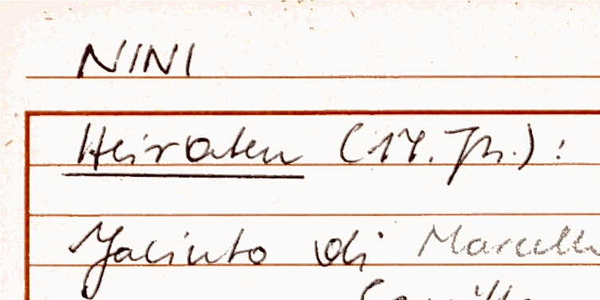 NINI
Heiraten (17. Jh.):
Jacinto di Marcello